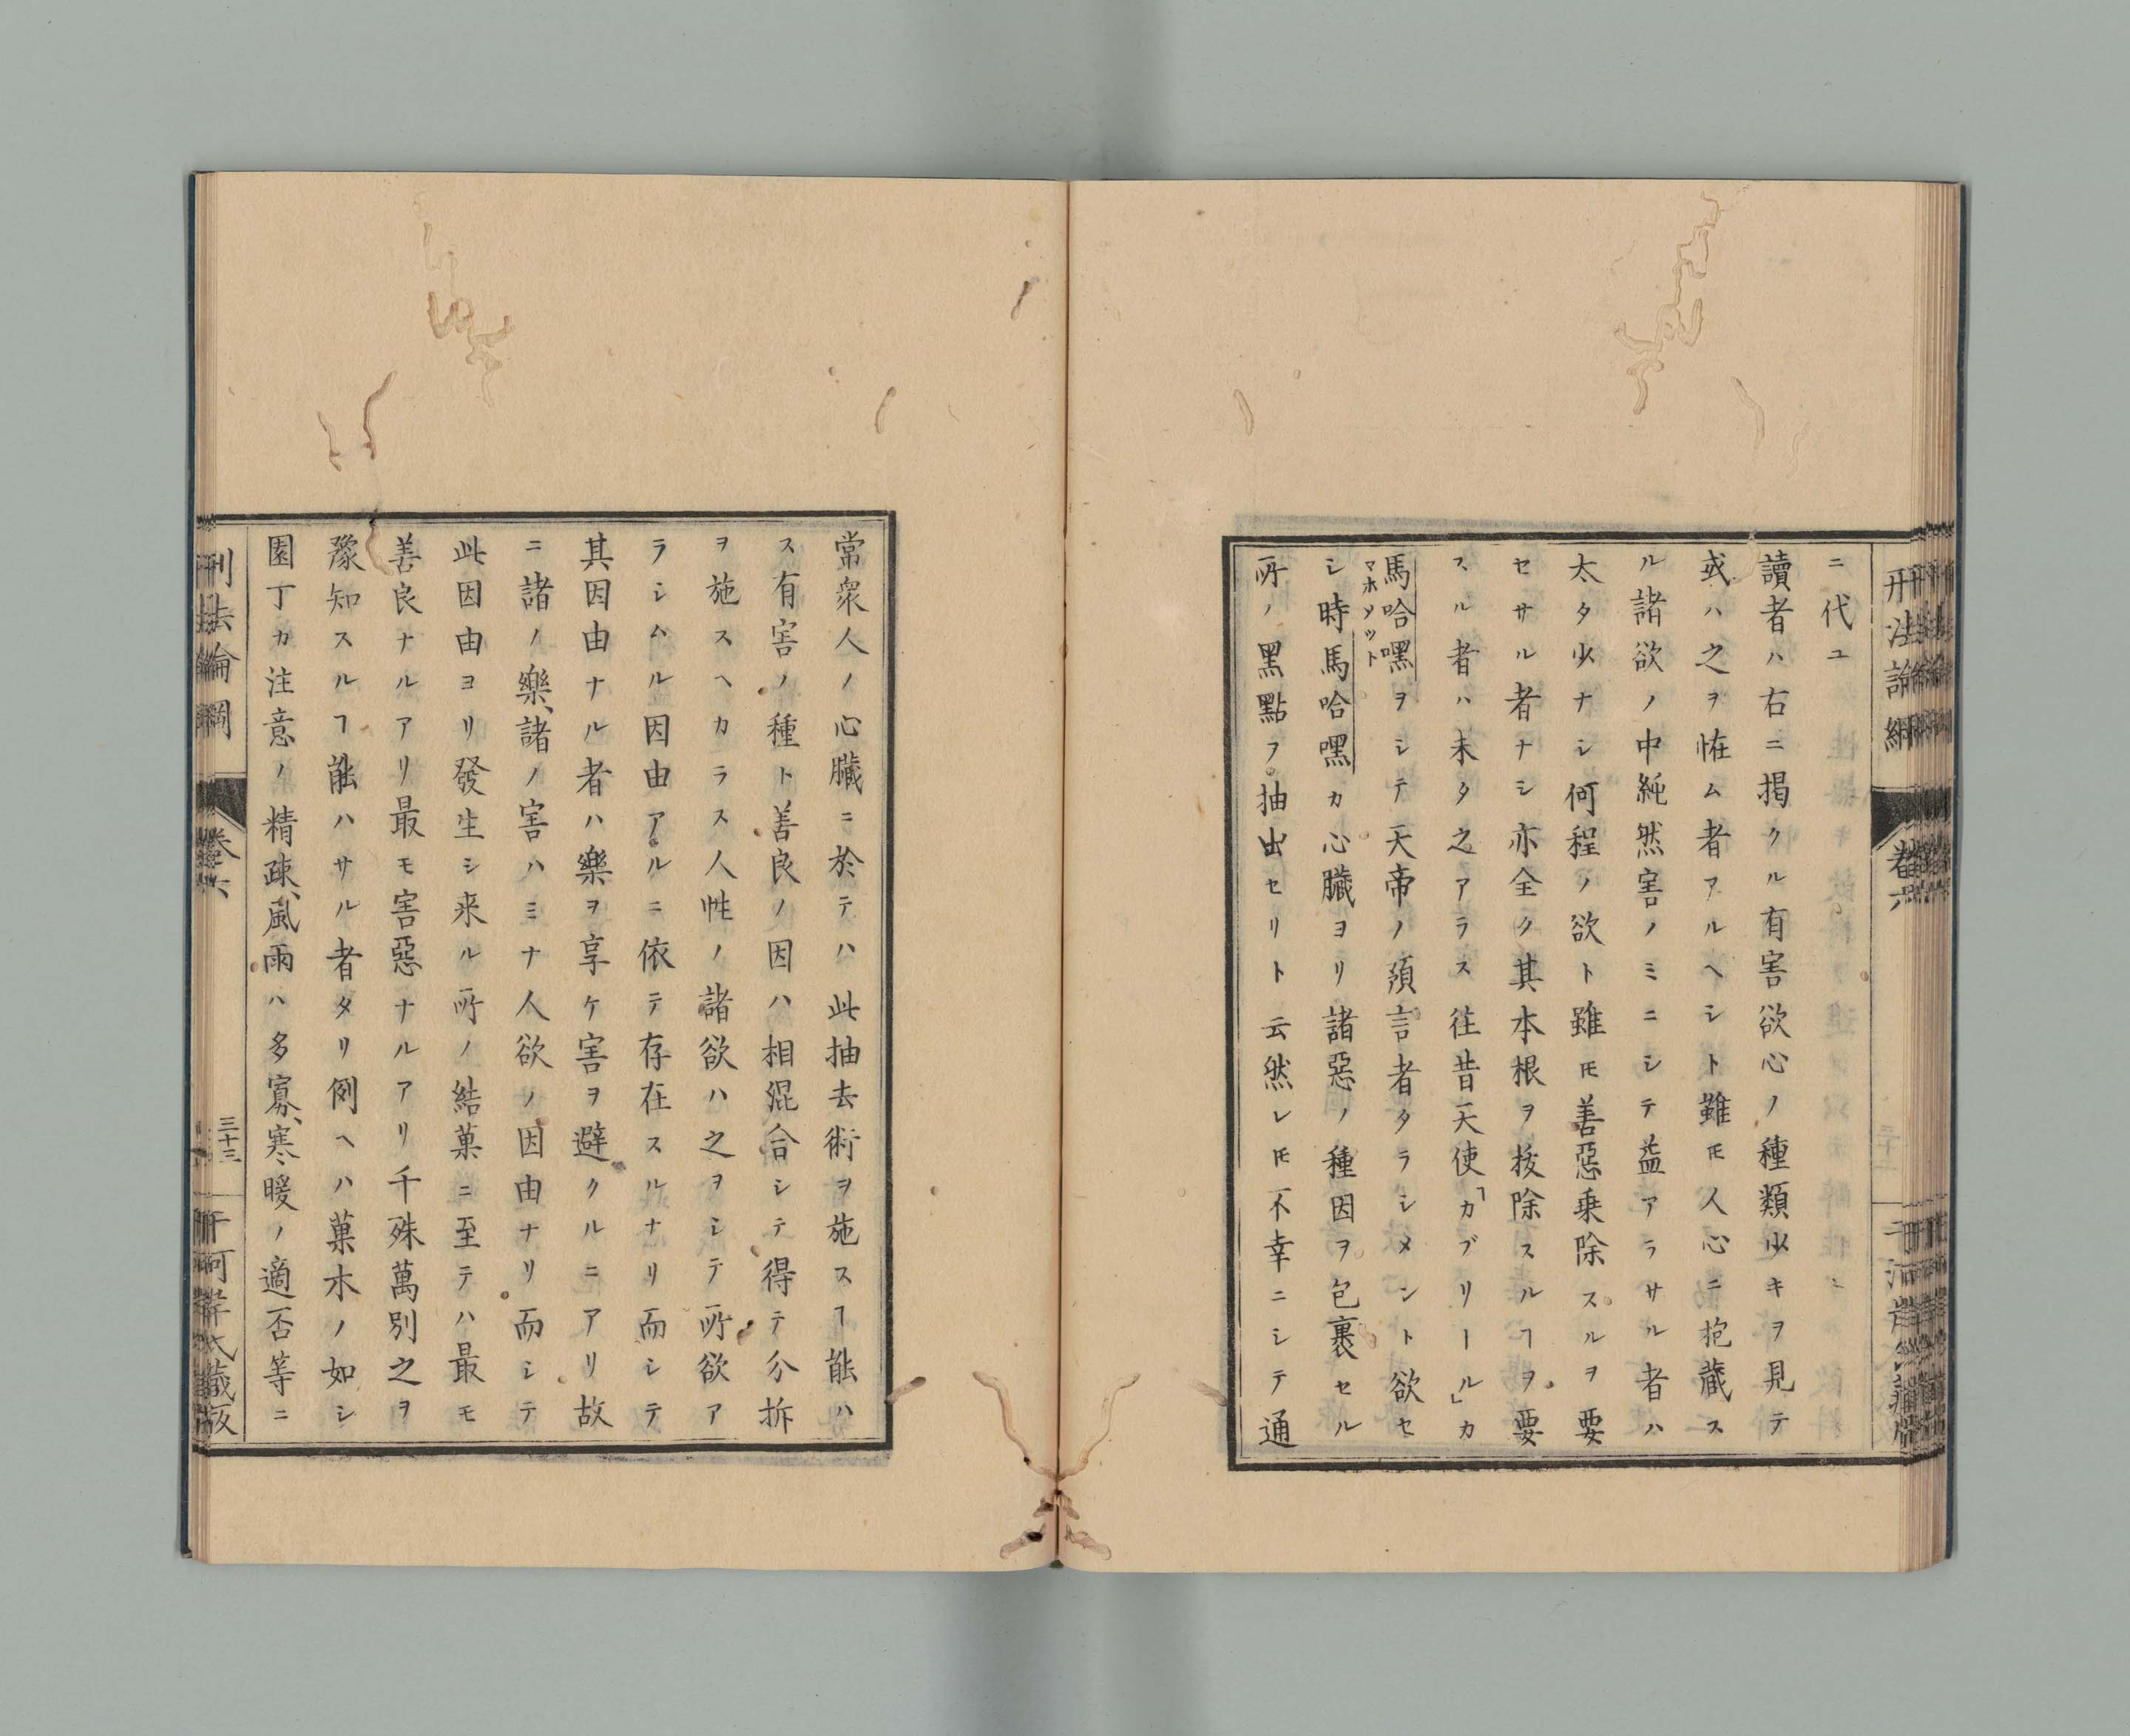 刑法論綱
卷六
ニ代ユ
讀者ハ右ニ掲クル有害欲心ノ種類少キヲ見テ
或ハ之ヲ恠ム者アルヘシト雖𪜈人心ニ抱藏ス
ル諸欲ノ中純然害ノミニシテ益アラサル者ハ
太タ少ナシ何程ノ欲ト雖𪜈善惡乗除スルヲ要
セサル者ナシ亦全ク其本根ヲ拔除スルヿヲ要
スル者ハ未タ之アラス往昔天使「カブリール」カ
馬哈嘿ヲシテ天帝ノ預言者タラシメント欲セ
マホメット
シ時馬哈嘿カ心臓ヨリ諸惡ノ種因ヲ包裹セル
所ノ黑點ヲ抽出セリト云然レ𪜈不幸ニシテ通
常衆人ノ心臓ニ於テハ此抽去術ヲ施スヿ能ハ
ス有害ノ種ト善良ノ因ハ相混合シテ得テ分拆
ヲ施スヘカラス人性ノ諸欲ハ之ヲシテ所欲ア
ラシムル因由アルニ依テ存在スルナリ而シテ
其因由ナル者ハ樂ヲ享ケ害ヲ避クルニアリ故
ニ諸ノ樂、諸ノ害ハミナ人欲ノ因由ナリ而シテ
此因由ヨリ發生シ来ル所ノ結菓ニ至テハ最モ
善良ナルアリ最モ害惡ナルアリ千殊萬別之ヲ
豫知スルヿ能ハサル者タリ例ヘハ菓木ノ如シ
園丁カ注意ノ精疎、風雨ハ多寡、寒暖ノ適否等ニ
刑法論綱
卷六
三十三
藏版